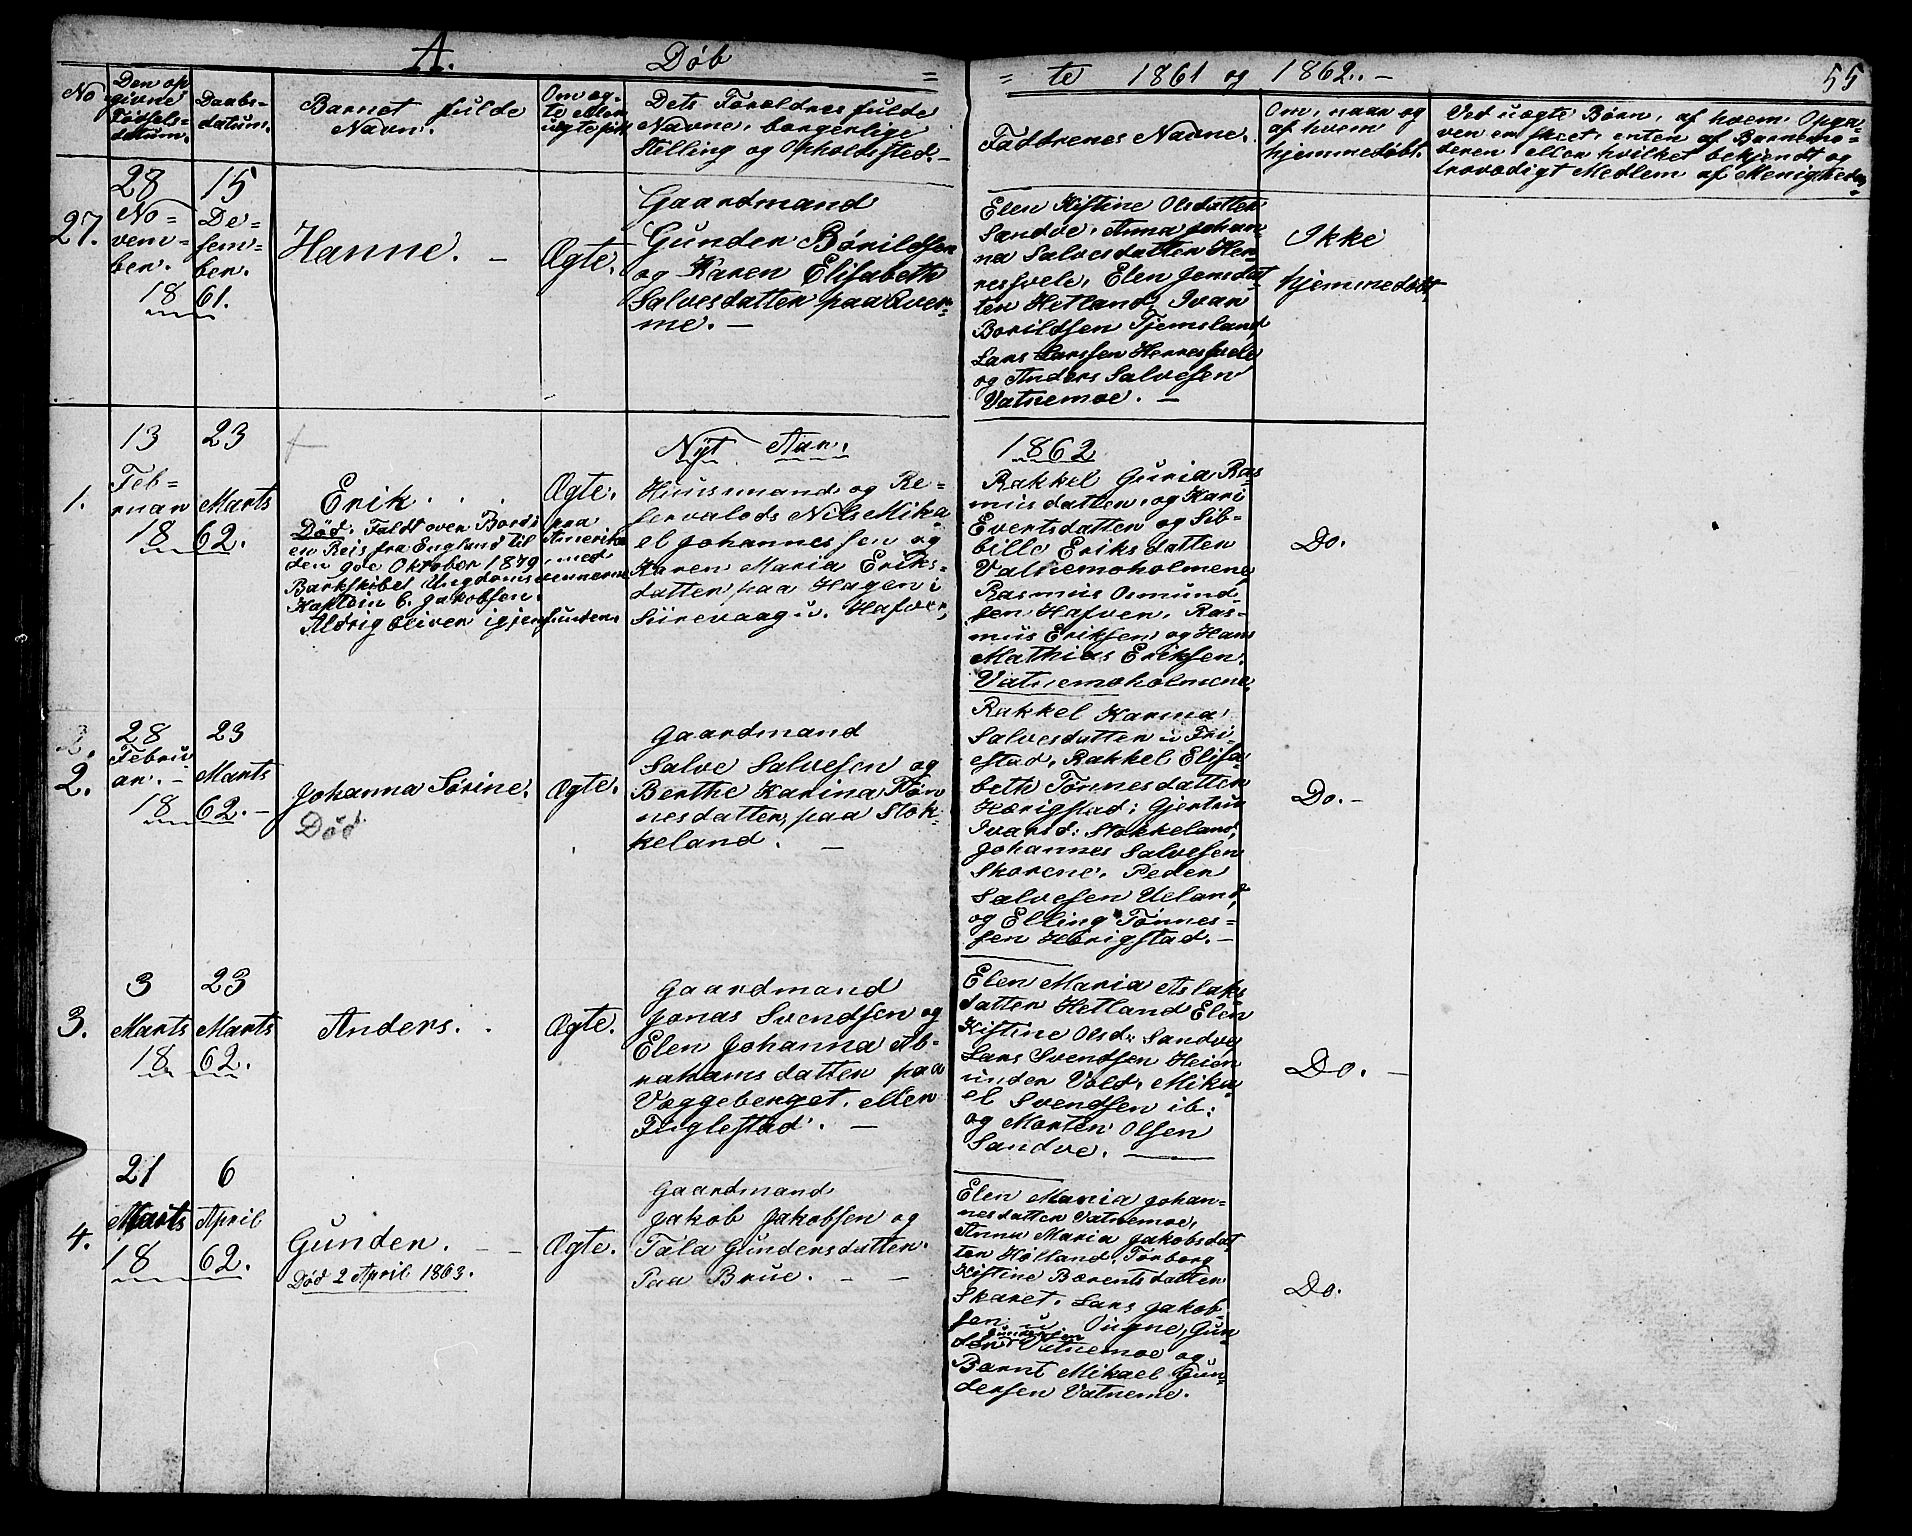 A. Døb = = te 1861 og 1862. - 55
No
Den op
givne
Fødsels-
datum.
Daabs-
datum.
Barnet fulde
Navn.
Om æg-
te eller
uægte fød
Dets Forældres fulde
Navne, borgerlige
Stilling og Opholdsted.
Faddrenes Navne.
Om, naar og
af hvem
hjemmedøbt.
Ved uægte Børn, af hvem Opga-
ven er skeet, enten af Barnemo-
deren, eller hvilket bekjendt og
troværdigt Medlem af Menigheden
27.
28
No-
vem-
ber.
15
De-
sem-
ber.
18 61.
Hanne. -
Ægte.
Gaardmand
Gunder Børildsen
og Karen Elisabeth
Salvesdatter paa Qver-
me. -
Elen Kistine Olsdatter
Sandve, Anna Johan-
na Salvesdatter Her-
resvele, Elen Jensdat
ter Hetland, Ivar
Borildsen Tjemsland
Lars Larssen Herresvele
og Anders Salvesen
Vatnemoe. -
Ikke
hjemmedøbt
Nyt Aar. 1862
1.
13
Feb-
ruar
23
Marts
18 62.
Erik . . .
Død. Faldt over Bord paa
en Reis fra England til Amerika
den 9de Oktober 1879, med
Barkskibet Ungdomsvennerne
Kaptein C. Jakobsen.
Aldrig bliver igjenfunden.
Ægte.
Huusmand og Re-
servalods Nils Mika-
el Johannessen og
Karen Maria Eriks-
datter paa Hagen i
Siirevaag u. Hafver,
Rakkel Guria Ras
musdatter, og Kari
Evertsdatter og Sib-
bille Eriksdatter
Vatnemoholmene
Rasmus Osmund-
sen Hafver, Ras-
mus Eriksen, og Hans
Mathias Eriksen.
Vatnemoholmene.
Do.
2.
2.
28
Febru
ar. -
23
Marts
18 62. -
Johanna Sørine.
Død
Ægte.
Gaardmand
Salve Salvesen og
Berthe Karina Tøn
nesdatter, paa Stok-
keland. -
Rakkel Karina
Salvesdatter u Fri-
estad, Rakkel Elisa-
beth Tønnesdatter
Hærigstad; Gjertrue
Ivarsd: Stokkeland,
Johannes Salvesen
Skorene, Peder
Salvesen Ueland,
og Elling Tønnes-
sen Hærigstad. -
Do. -
3.
3
Marts
23
Marts
18 62.
Anders. .
Ægte.
Gaardmand
Jonas Svendsen og
Elen Johanna Ab-
rahamsdatter paa
Væggeberget, eller
Fuglestad. -
Elen Maria Aslaks
datter Hetland Elen
Kistine Olsd: Sandve
Lars Svendsen Heien
under Vold, Mika-
el Svendsen ib:
og Morten Olsen
Sandve.
Do. -
4.
21
Marts
6
April
18 62.
Gunder. - -
Død 2 April 1863.
Ægte.
Gaardmand
Jakob Jakobsen og
Tala Gundersdatter.
Paa Brue. - -
Elen Maria Johan-
nesdatter Vatnemoe,
Anna Maria Jakobsdat
ter Hølland, Torborg
Kistine Bærentsdatter
Skaret, Lars Jakob-
sen u Ougne, Gun
der Gundersen Vatnemoe og
Barnt Mikael Gun-
dersen Vatneme.
Do.